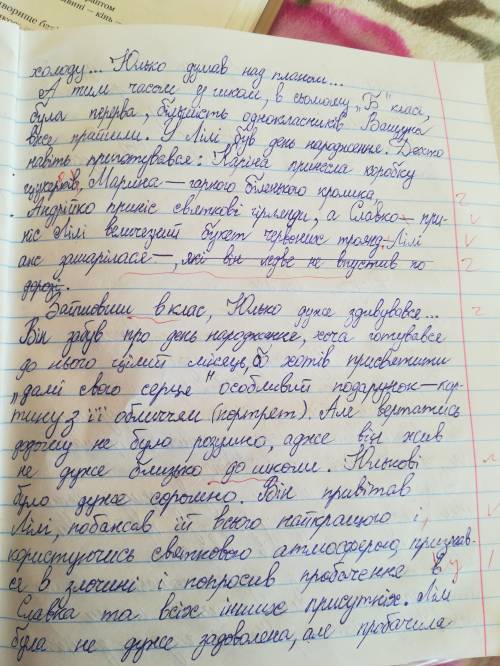 холоду... Юлько думав над планом...
А тим часом у школі, в сьомому „Б" класі,
була перерва, більшість однокласників Ващука
вже прийшли. У Лілі був день народження. Дехто
навіть припаривався: Каріна принесла коробку
цукерків, Марина — гарного біленького кролика,
Андрійко приніс святкові гірлянди, а Славко — при-
ніс Лілі величезний букет червоних троянд. Лілі
аж зашарілася —, які він ледве не впустив по
дорозі.
Зайшовши в клас, Юлько дуже здивувався...
Він забув про день народження, хоча готувався
до нього цілий місяць, бо хотів присвятити
„дамі свого серця" особливий подарунок — кар-
тину з її обличчем (портрет). Але вертатись
додому не було розумно, адже він жив
не дуже близько до школи. Юлькові
було дуже соромно. Він привітав
Лілі, побажав їй всього найкращого і,
користуючись святковою атмосферою, признав-
ся в злочині і попросив пробачення в у
Славка та всіх інших присутніх. Лілі
була не дуже задоволена, але пробачила